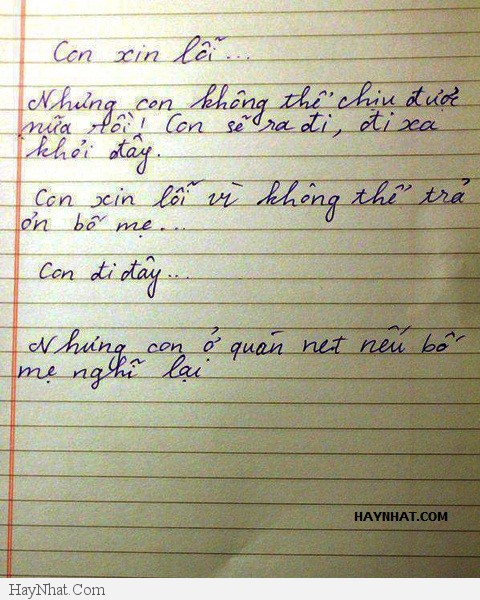 Con xin lỗi...
Nhưng con không thể chịu được
nữa rồi! Con sẽ ra đi, đi xa
khỏi đây.
Con xin lỗi vì không thể trả
ơn bố mẹ...
Con đi đây...
Nhưng con ở quán net nếu bố
mẹ nghĩ lại
HAYNHAT.COM
HayNhat.Com